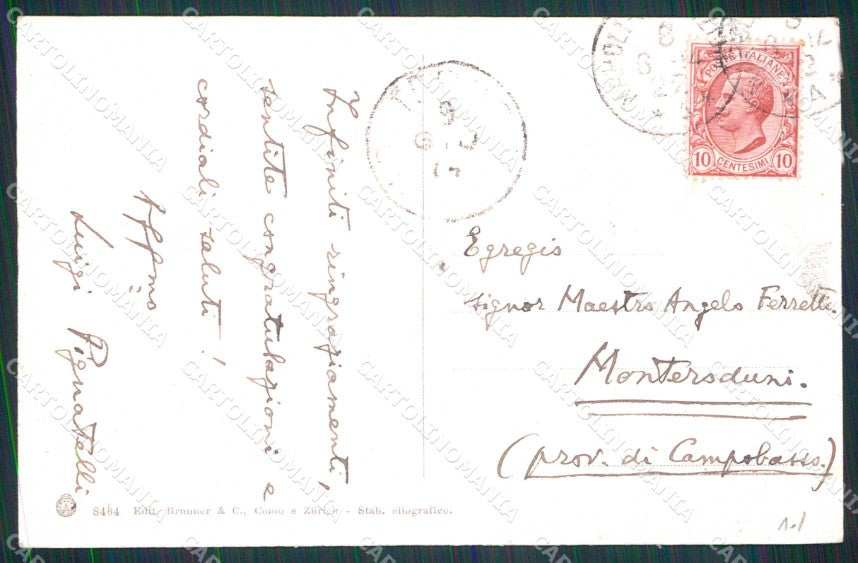 Infiniti ringraziamenti,
sentite congratulazioni e
cordiali saluti!
Affmo
Luigi Pignatelli
POSTE ITALIANE
10 CENTESIMI 10
8
9
Egregio
signor Maestro Angelo Ferretti.
Monteroduni.
(prov. di Campobasso)
8464 Edit. Brunner & C., Como e Zürich - Stab. eliografico.
CARTOLINOMANIA